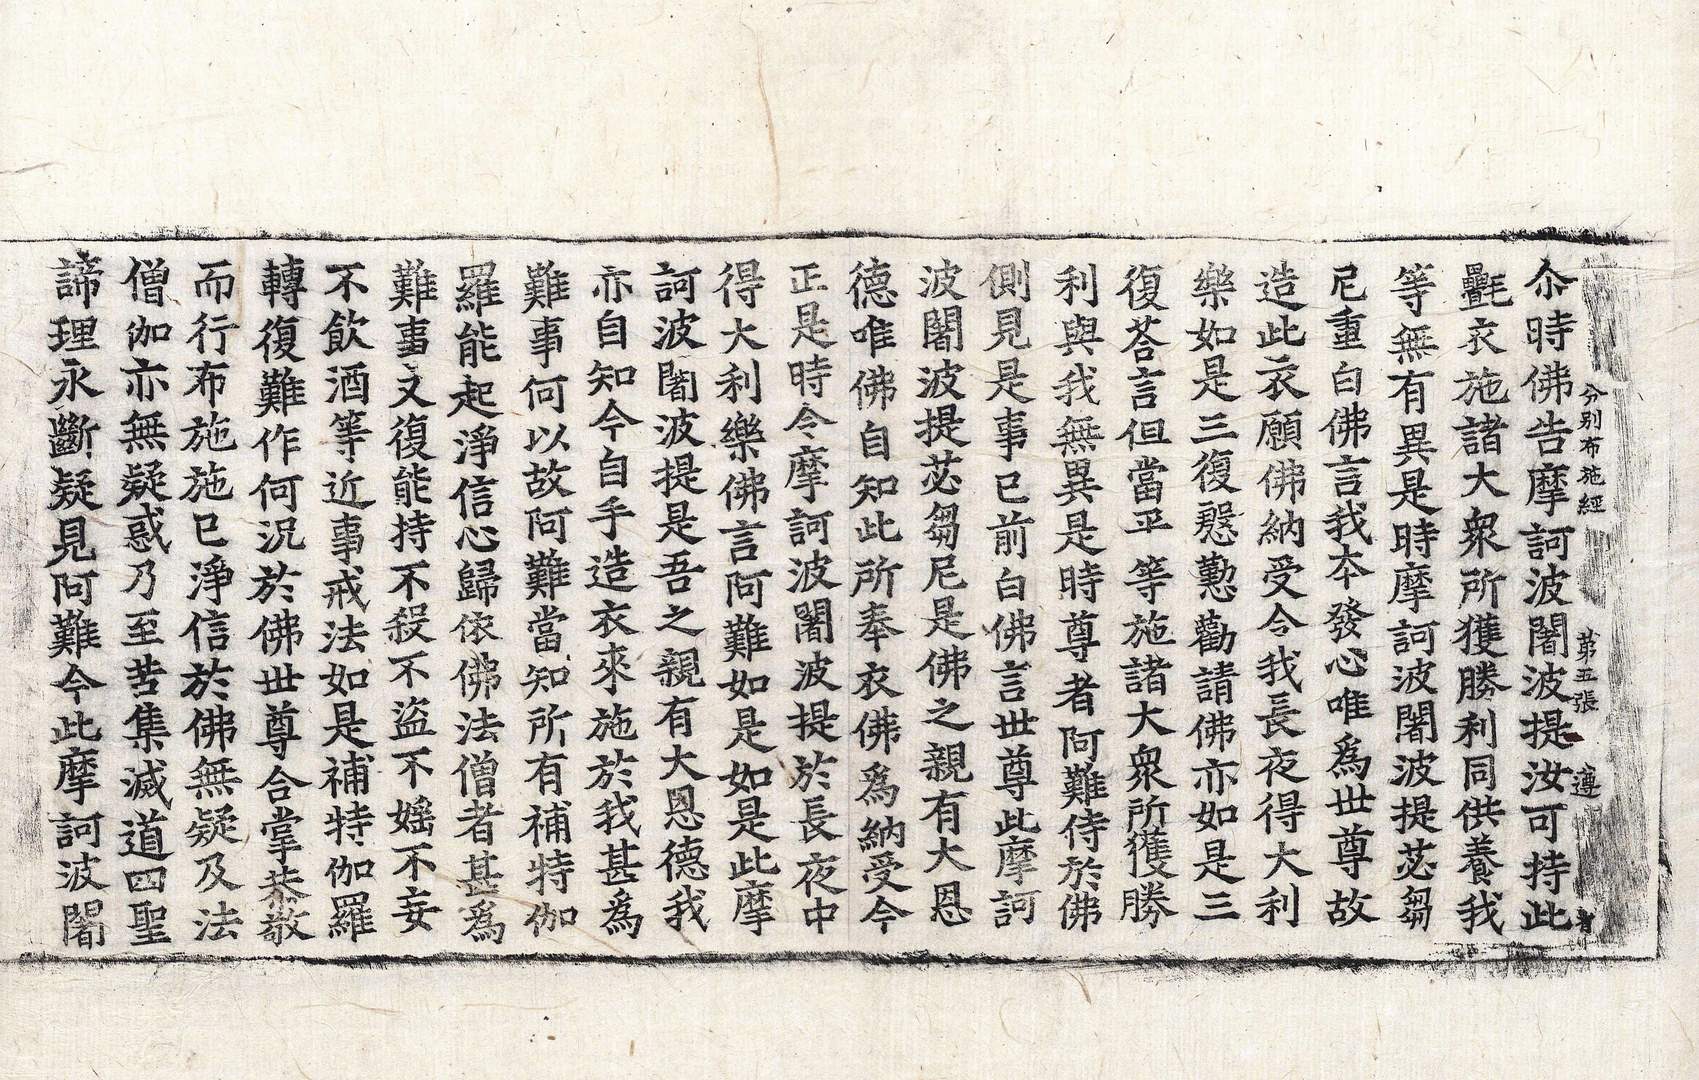 分别布施經 第五張 遵
尒時佛告摩訶波闍波提汝可持此
氎衣施諸大衆所獲勝利同供養我
等無有異是時摩訶波闍波提苾芻
尼重白佛言我本發心唯爲世尊故
造此衣願佛納受令我長夜得大利
樂如是三復慇懃勸請佛亦如是三
復荅言但當平等施諸大衆所獲勝
利與我無異是時尊者阿難侍於佛
側見是事已前白佛言世尊此摩訶
波闍波提苾芻尼是佛之親有大恩
德唯佛自知此所奉衣佛爲納受今
正是時令摩訶波闍波提於長夜中
得大利樂佛言阿難如是如是此摩
訶波闍波提是吾之親有大恩德我
亦自知今自手造衣來施於我甚爲
難事何以故阿難當知所有補特伽
羅能起淨信心歸依佛法僧者甚爲
難事又復能持不殺不盜不婬不妄
不飲酒等近事戒法如是補特伽羅
轉復難作何況於佛世尊合掌恭敬
而行布施施已淨信於佛無疑及法
僧伽亦無疑惑乃至苦集滅道四聖
諦理永斷疑見阿難今此摩訶波闍